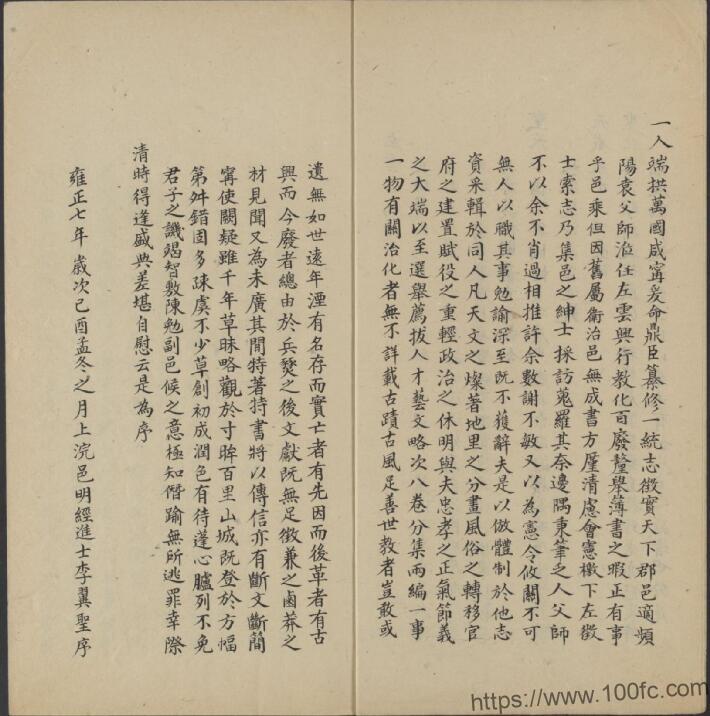 一人端拱萬國咸寧爰命鼎臣纂修一統志徵實天下郡邑適頻
陽袁父師涖任左雲興行教化百廢釐舉薄書之暇正有事
乎邑乘但因舊屬衞治邑無成書方厪清慮會憲檄下左徵
士索志乃集邑之紳士採訪蒐羅其奈邊隅秉筆乏人父師
不以余不肖過相推許余數謝不敏又以為憲令攸關不可
無人以職其事勉諭深至既不獲辭夫是以倣體制於他志
資采輯於同人凡天文之燦著地里之分畫風俗之轉移官
府之建置賦役之重輕政治之休明與夫忠孝之正氣節義
之大端以至選舉薦拔人才藝文略次八卷分集兩編一事
一物有關治化者無不詳載古蹟古風足善世教者豈敢或
遺無如世遠年湮有名存而實亡者有先因而後革者有古
興而今廢者總由於兵燹之後文獻既無足徵兼之鹵莽之
材見聞又為未廣其間特著特書將以傳信亦有斷文斷簡
寧使闕疑雖千年草昧略觀於寸眸百里山城既登於方幅
第舛錯固多疎虞不少草創初成潤色有待蓬心臚列不免
君子之譏竭智敷陳勉副邑候之意極知僭踰無所逃罪幸際
清時得逢盛典差堪自慰云是為序
雍正七年歲次己酉孟冬之月上浣邑明經進士李翼聖序
https://www.100fc.com